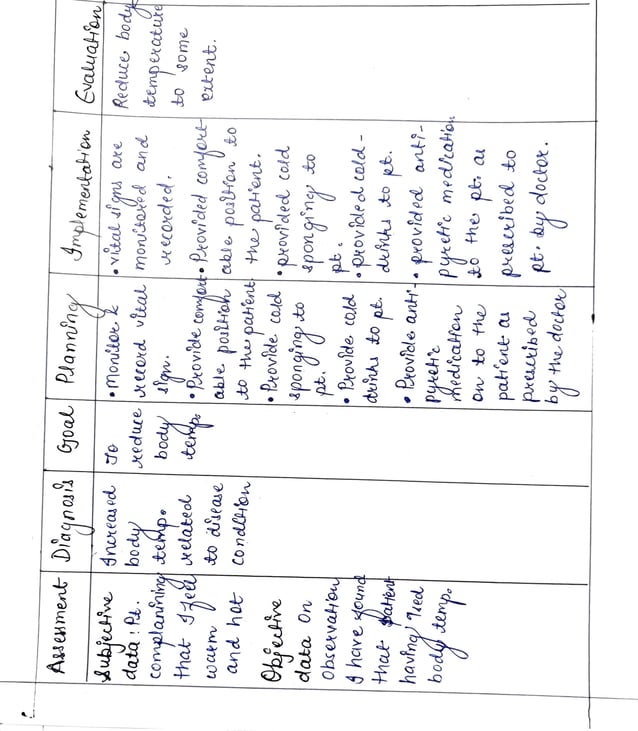 Assessment
Subjective
data: Pt.
complainning
that I feel
warm and hot
Objective
data On
Observation
I have found
that patient
having ↑ed
body temp.
Diagnosis
Increased
body
temp.
related
to disease
condition
Goal
To
reduce
body
temp.
Planning
• Monitor &
record vital
sign.
• Provide comfort-
able position
to the patient
• Provide cold
sponging to
pt.
• Provide cold
drinks to pt.
• Provide anti-
pyretic
medication
on to the
patient as
prescribed
by the doctor
Implementation
• vital signs are
monitored and
recorded.
• Provided comfort-
able position to
the patient.
• provided cold
sponging to
pt.
• provided cold-
drinks to pt.
• provided anti-
pyretic medication
to the pt. as
prescribed to
pt. by doctor.
Evaluation
Reduce body
temperature
to some
extent.